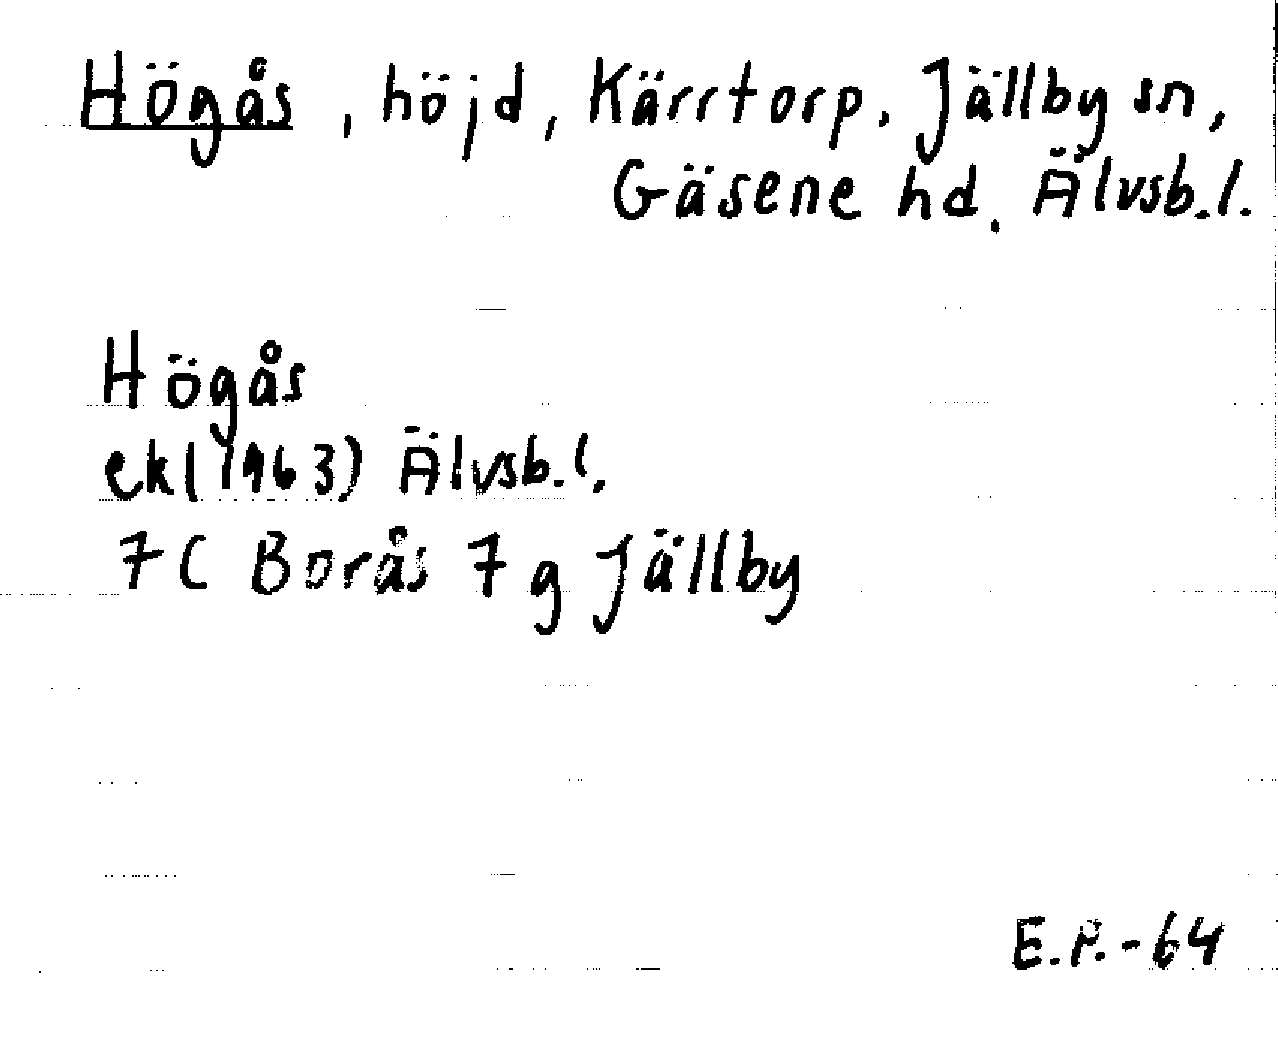 Högås, höjd, Kärrtorp. Jällby sn,
Gäsene hd. Älvsb.l.
Högås
ek(1963) Älvsb.l.
7C Borås 7g Jällby
E.P.-64